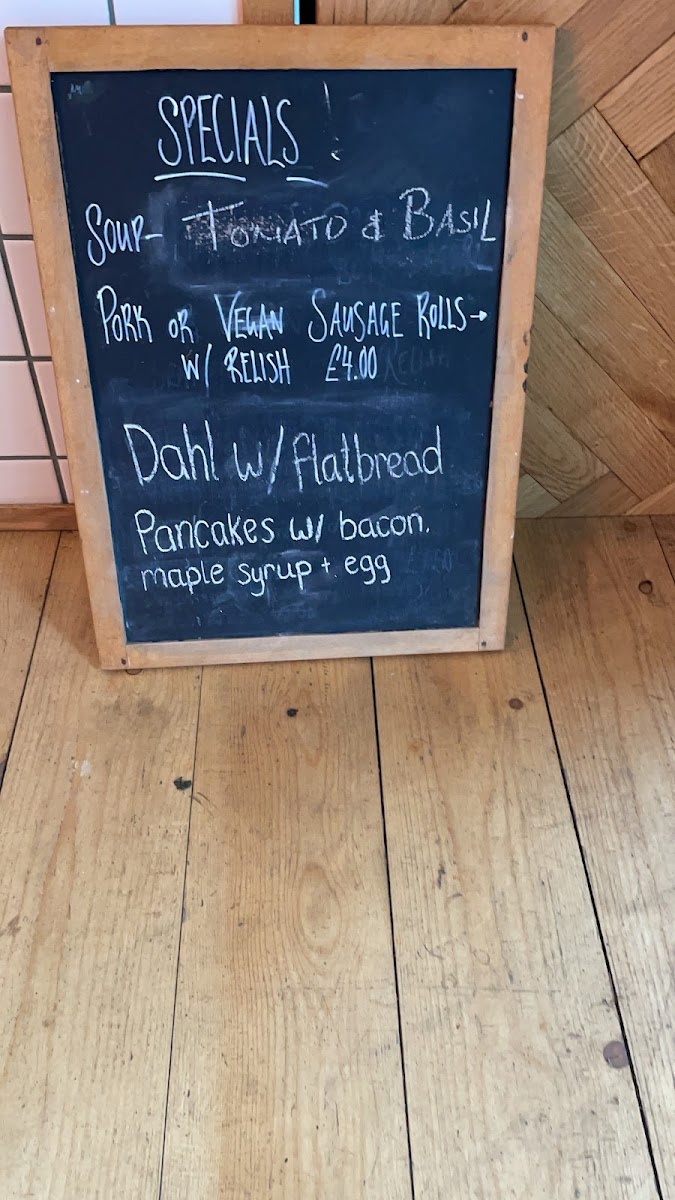 SPECIALS !
SOUP- TOMATO & BASIL
PORK OR VEGAN SAUSAGE ROLLS→
W/ RELISH £4.00
Dahl w/ flatbread
Pancakes w/ bacon.
maple syrup + egg